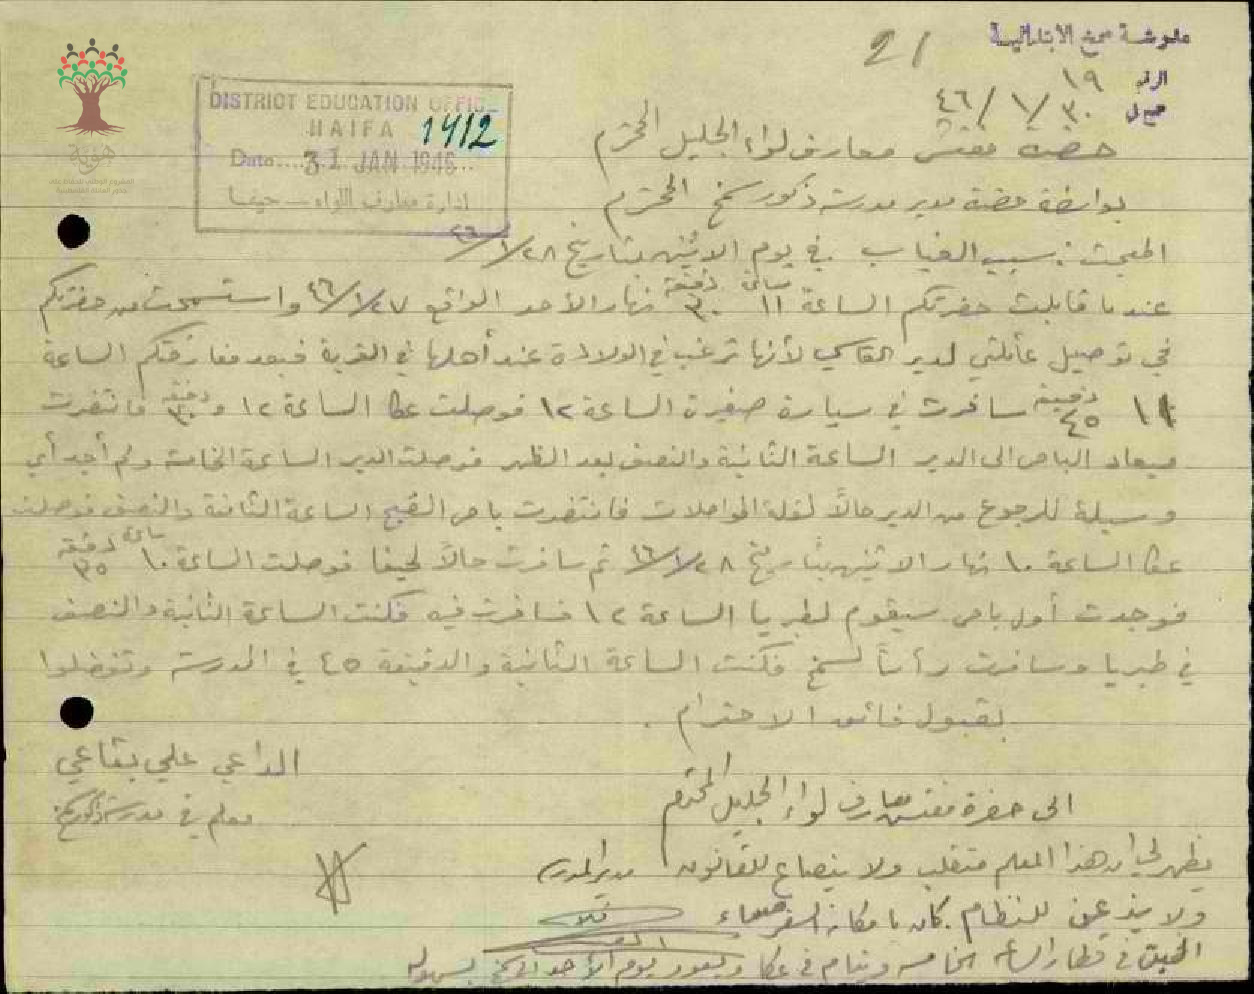 مدرسة سمخ الابتدائية
الرقم ١٩
21
سمخ في ٣٠/١/٤٦
DISTRICT EDUCATION OFFICE
HAIFA
1412
Date....31 JAN 1946...
ادارة معارف اللواء – حيفا
هوية
حضرة مفتش معارف لواء الجليل المحترم
بواسطة حضرة مدير مدرسة ذكور سمخ المحترم
المبحث : سبب الغياب في يوم الاثنين بتاريخ ٢٨/١/٤٦
عندما قابلت حضرتكم الساعة ١١ ساعة ٣٠ دقيقة نهار الأحد الواقع ٢٧/١/٤٦ واستسمحت من حضرتكم
في توصيل عائلتي لدير القاسي لأنها ترغب في الولادة عند أهلها في القرية فبعد مفارقتكم الساعة
١١ ٤٥ دقيقة سافرت في سيارة صغيرة الساعة ١٢ فوصلت عكا الساعة ١٢ و ٣٠ دقيقة فانتظرت
ميعاد الباص الى الدير الساعة الثانية والنصف بعد الظهر فوصلت الدير الساعة الخامسة ولم أجد أي
وسيلة للرجوع من الدير حالاً لقلة المواصلات فانتظرت باص الصبح الساعة الثامنة والنصف فوصلت
عكا الساعة ١٠ نهار الاثنين بتاريخ ٢٨/١/٤٦ ثم سافرت حالاً لحيفا فوصلت الساعة ١٠ ساعة ٣٥ دقيقة
فوجدت أول باص سيقوم لطبريا الساعة ١٢ فسافرت فيه فكنت الساعة الثانية والنصف
في طبريا وسافرت رأساً لسمخ فكنت الساعة الثانية والدقيقة ٤٥ في المدرسة وتفضلوا
بقبول فائق الاحترام .
الداعي علي بقاعي
معلم في مدرسة ذكور سمخ
الى حضرة مفتش معارف لواء الجليل المحترم
يظهر لي ان هذا المعلم متقلب ولا ينصاع للقانون
مدير المدرسة
ولا يذعن للنظام . كان بامكانه السفر مساء
في قطار الساعة الخامسة وينام في عكا ويعود يوم الأحد الى سمخ بسهولة